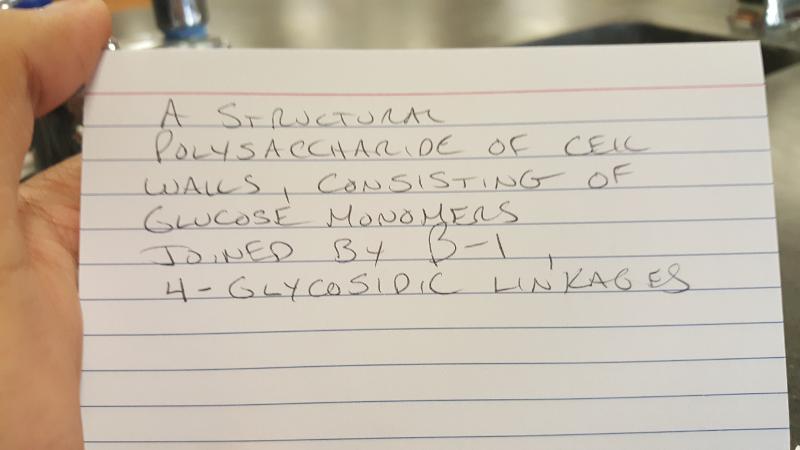 A STRUCTURAL
POLYSACCHARIDE OF CELL
WALLS, CONSISTING OF
GLUCOSE MONOMERS
JOINED BY β-1,
4-GLYCOSIDIC LINKAGES